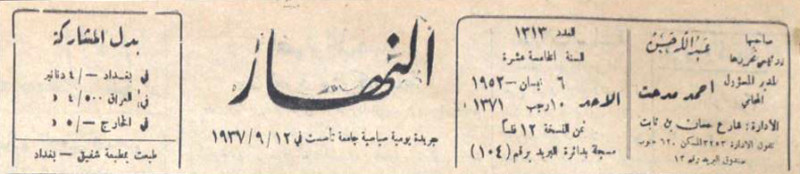 صاحبها
ورئيس تحريرها عبدالله حسين
المدير المسؤول
المحامي احمد مدحت
الأدارة: شارع حسان بن ثابت
تلفون الادارة ٣٢٥٣ المسكن ٦٢٠ جنوب
صندوق البريد رقم ١٢
العدد ١٣١٣
السنة الخامسة عشرة
الاحد
٦ نيسان — ١٩٥٢
١٠ رجب ١٣٧١
ثمن النسخة ١٢ فلساً
مسجلة بدائرة البريد برقم (١٠٤)
النهار
جريدة يومية سياسية جامعة تأسست في ١٢/٩/١٩٣٧
بدل المشاركة
في بغداد —/٤ دنانير
في العراق ٥٠٠/٤ د
في الخارج —/٥ د
طبعت بمطبعة شفيق — بغداد